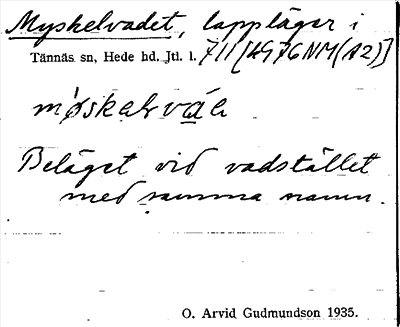 Myskelvadet, lappläger i
Tännäs sn, Hede hd. Jtl. l. 711 [4976NM(A2)]
Beläget vid vadstället
med samma namn.
O. Arvid Gudmundson 1935.